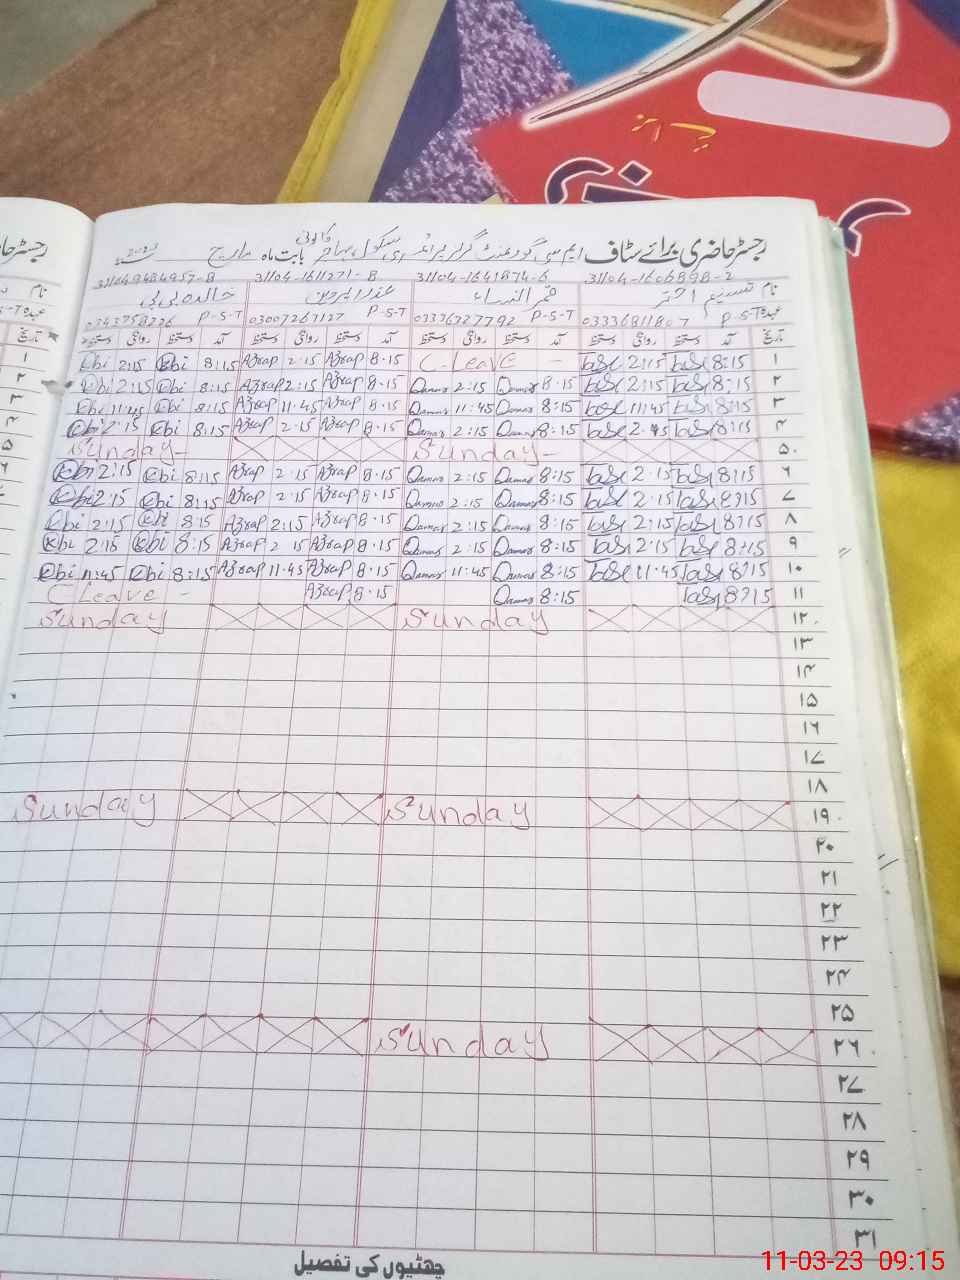 رجسٹر حاضری برائے سٹاف ایم سی گورنمنٹ گرلز پرائمری سکول مہاجر کالونی بابت ماہ مارچ 2023
31104-1606898-2 31104-1641874-6 31104-1611271-8 3110494849 57-8
نام تسنیم اختر قمر النساء عذرا پروین خالدہ بی بی
عہدہ P-S-T 03336811807 P-S-T 03336727792 P-S-T 03007267127 P-S-T
تاریخ آمد دستخط روانگی دستخط آمد دستخط روانگی دستخط آمد دستخط روانگی دستخط آمد دستخط روانگی دستخط
۱ 8:15 2:15 C-Leave - 8.15 Azrap 2.15 Azrap 8:15 Kbi 2:15 Kbi
۲ 8:15 2:15 8.15 Qamar 2:15 Qamar 8.15 Azrap 2:15 Azrap 8:15 Kbi 2:15 Kbi
۳ 8:15 11:45 8:15 Qamar 11:45 Qamar 8.15 Azrap 11.45 Azrap 8:15 Kbi 11:45 Kbi
۴ 8:15 8:15 Qamar 2:15 Qamar 8.15 Azrap 2.15 Azrap 8:15 Kbi 2:15 Kbi
۵ Sunday - Sunday -
۶ 8:15 2.15 8:15 Qamar 2:15 Qamar 8.15 Azrap 2.15 Azrap 8:15 Kbi 2:15 Kbi
۷ 8:15 2.15 8:15 Qamar 2:15 Qamar 8.15 Azrap 2.15 Azrap 8:15 Kbi 2:15 Kbi
۸ 8:15 2:15 8:15 Qamar 2:15 Qamar 8.15 Azrap 2:15 Azrap 8:15 Kbi 2:15 Kbi
۹ 8:15 2.15 8:15 Qamar 2:15 Qamar 8.15 Azrap 2 15 Azrap 8:15 Kbi 2:15 Kbi
۱۰ 8:15 11.45 8:15 Qamar 11:45 Qamar 8.15 Azrap 11.45 Azrap 8:15 Kbi 11:45 Kbi
۱۱ 8:15 8:15 Qamar 8.15 Azrap C Leave -
۱۲ Sunday Sunday
۱۳
۱۴
۱۵
۱۶
۱۷
۱۸
۱۹ Sunday Sunday
۲۰
۲۱
۲۲
۲۳
۲۴
۲۵
۲۶ Sunday
۲۷
۲۸
۲۹
۳۰
۳۱
چھٹیوں کی تفصیل
11-03-23 09:15